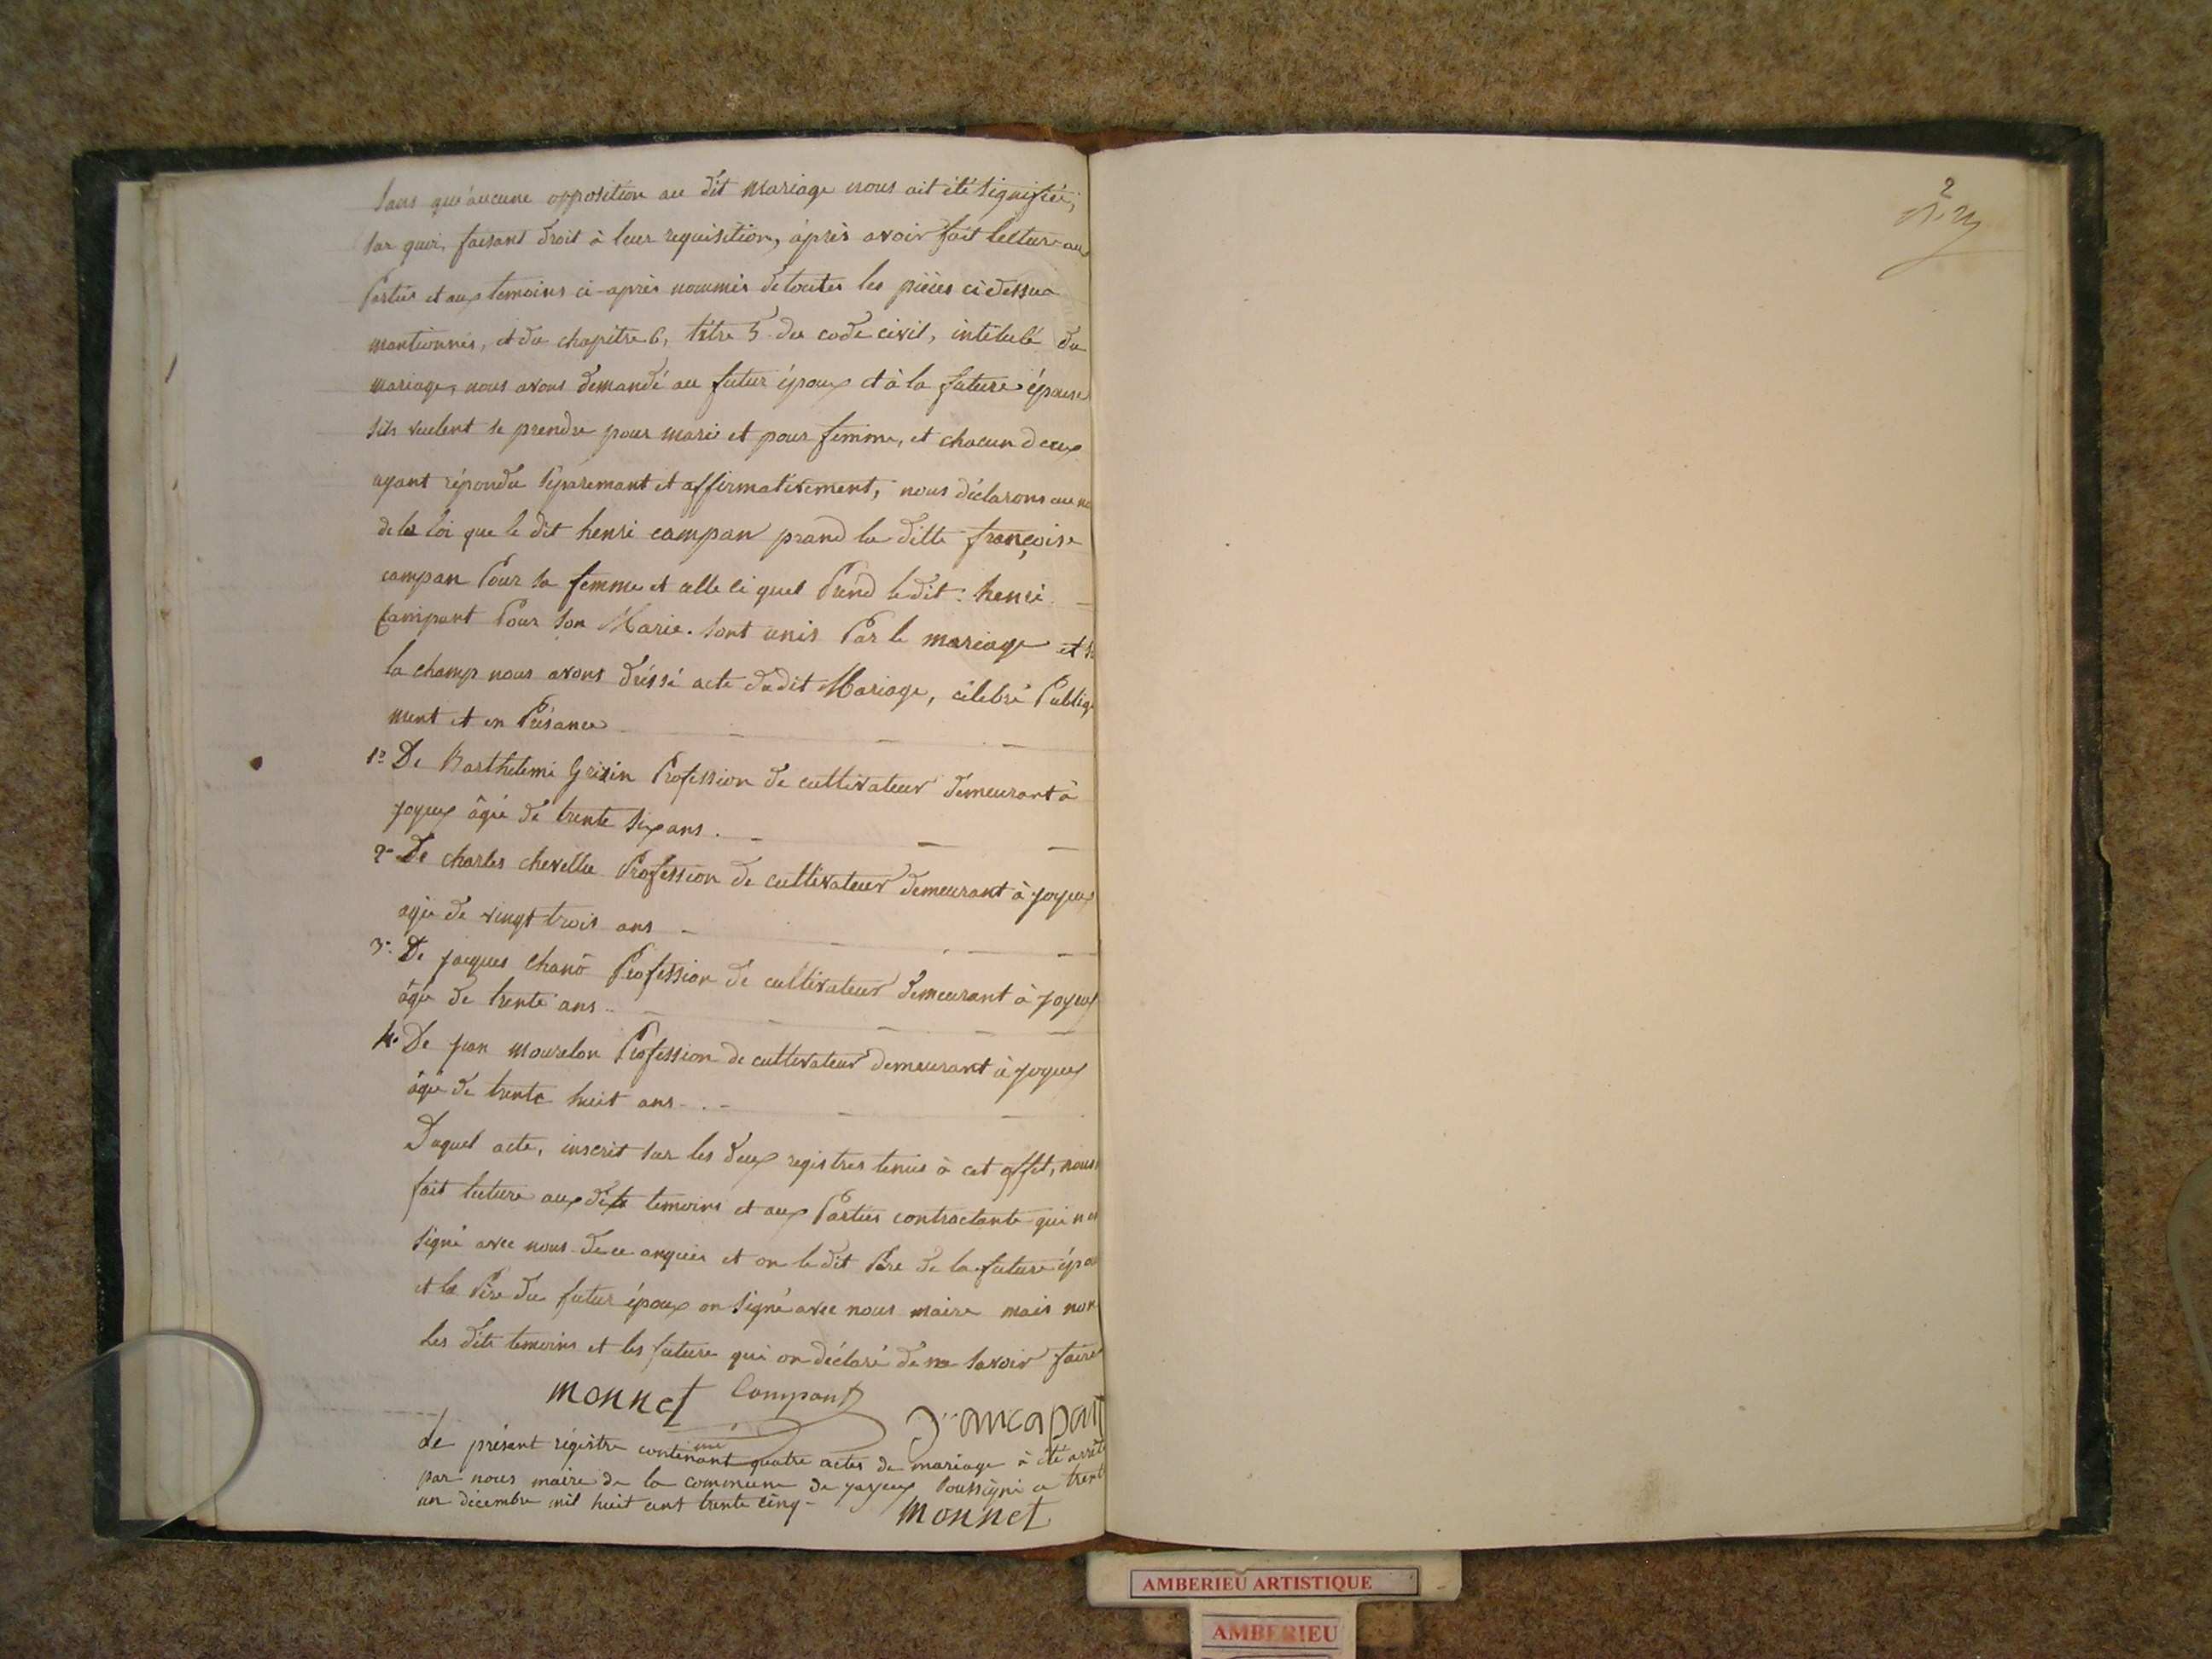 Sans qu'aucune opposition au dit Mariage nous ait été signifiée,
sur quoi, faisant droit à leur requisition, après avoir fait lecture aux
Parties et aux temoins ci-après nommés de toutes les pièces ci dessus
mantionnés, et du chapitre 6, titre 5 du code civil, intitulé du
mariage, nous avons demandé au futur époux et à la future épouse
sils veulent se prendre pour mari et pour femme, et chacun deux
ayant répondu séparemant et affirmativement, nous déclarons au no
de la loi que le dit henri campan prand la ditte françoise
campan Pour sa femme et elle ci quel Prend le dit henri
Campant Pour son Marie. sont unis Par le mariage et s
la champ nous avons dréssé acte dudit Mariage, célébré Publiq
ment et en Présance
1º De Barthelemi Grisin Profession de cultivateur demeurant à
joyeux âgé de trente six ans.
2º De charles chevellu Profession de cultivateur demeurant à joyeux
agé de vingt trois ans
3º De jacques Chanö Profession de cultivateur demeurant à joyeux
âgé de trente ans
4º De jean mourelon Profession de cultivateur demeurant à joyeux
âgé de trente huit ans
Duquel acte, inscrit sur les deux registres tenus à cet effet, nous
fait lecture aux dits temoins et aux Parties contractante qui n
signé avec nous de ce anquis et on le dit Père de la future épou
et le Père du futur époux on signé avec nous maire mais non
les dits temoins et les future qui on déclaré de ne savoir faire
monnet Compant
Le présent régistre contenant quatre actes de mariage à été arrêté
par nous maire de la commune de joyeux Soussigné a trent
un décembre mil huit cent trente cinq
monnet
2
AMBERIEU ARTISTIQUE
AMBERIEU